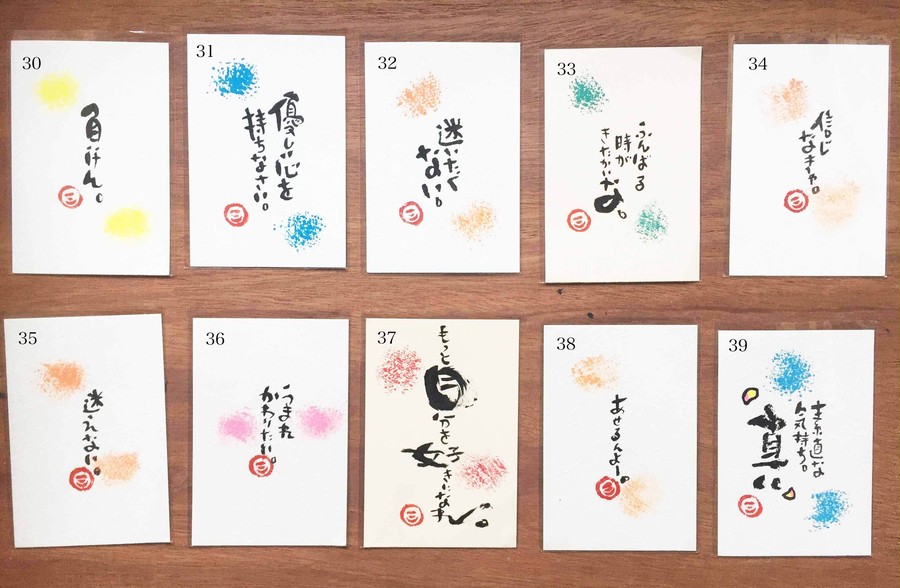 30
負けん。
31
優しい心を
持ちなさい。
32
迷いたく
ない。
33
ふんばる
時が
きたかいな。
34
信じ
なきゃ。
35
迷えない。
36
うまれ
かわりたい。
37
もっと自分を好きになれい。
38
あせるんよー。
39
素直な
気持ち。